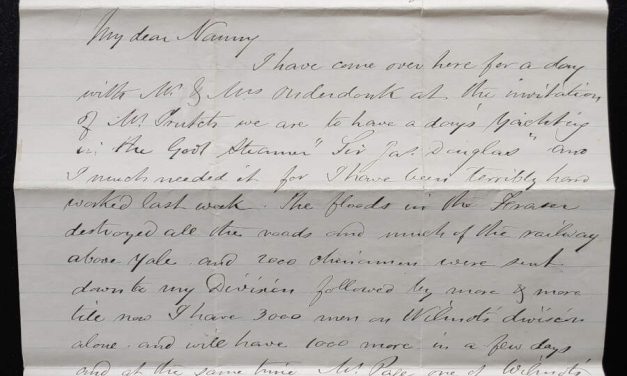 My dear Nanny
I have come over here for a day
with Mr. & Mrs Onderdonk at the invitation
of Mr Trutch we are to have a days "Yachting
in the Govt Steamer "Sir Jas. Douglas" and
I much needed it for I have been terribly hard
worked last week. The floods in the Fraser
destroyed all the roads and much of the railway
above Yale and 2000 chinamen were sent
down to my Division followed by more & more
till now I have 3000 men on Wilmots division
alone and will have 1000 more in a few days
and at the same time Mr. Page one of Wilmots